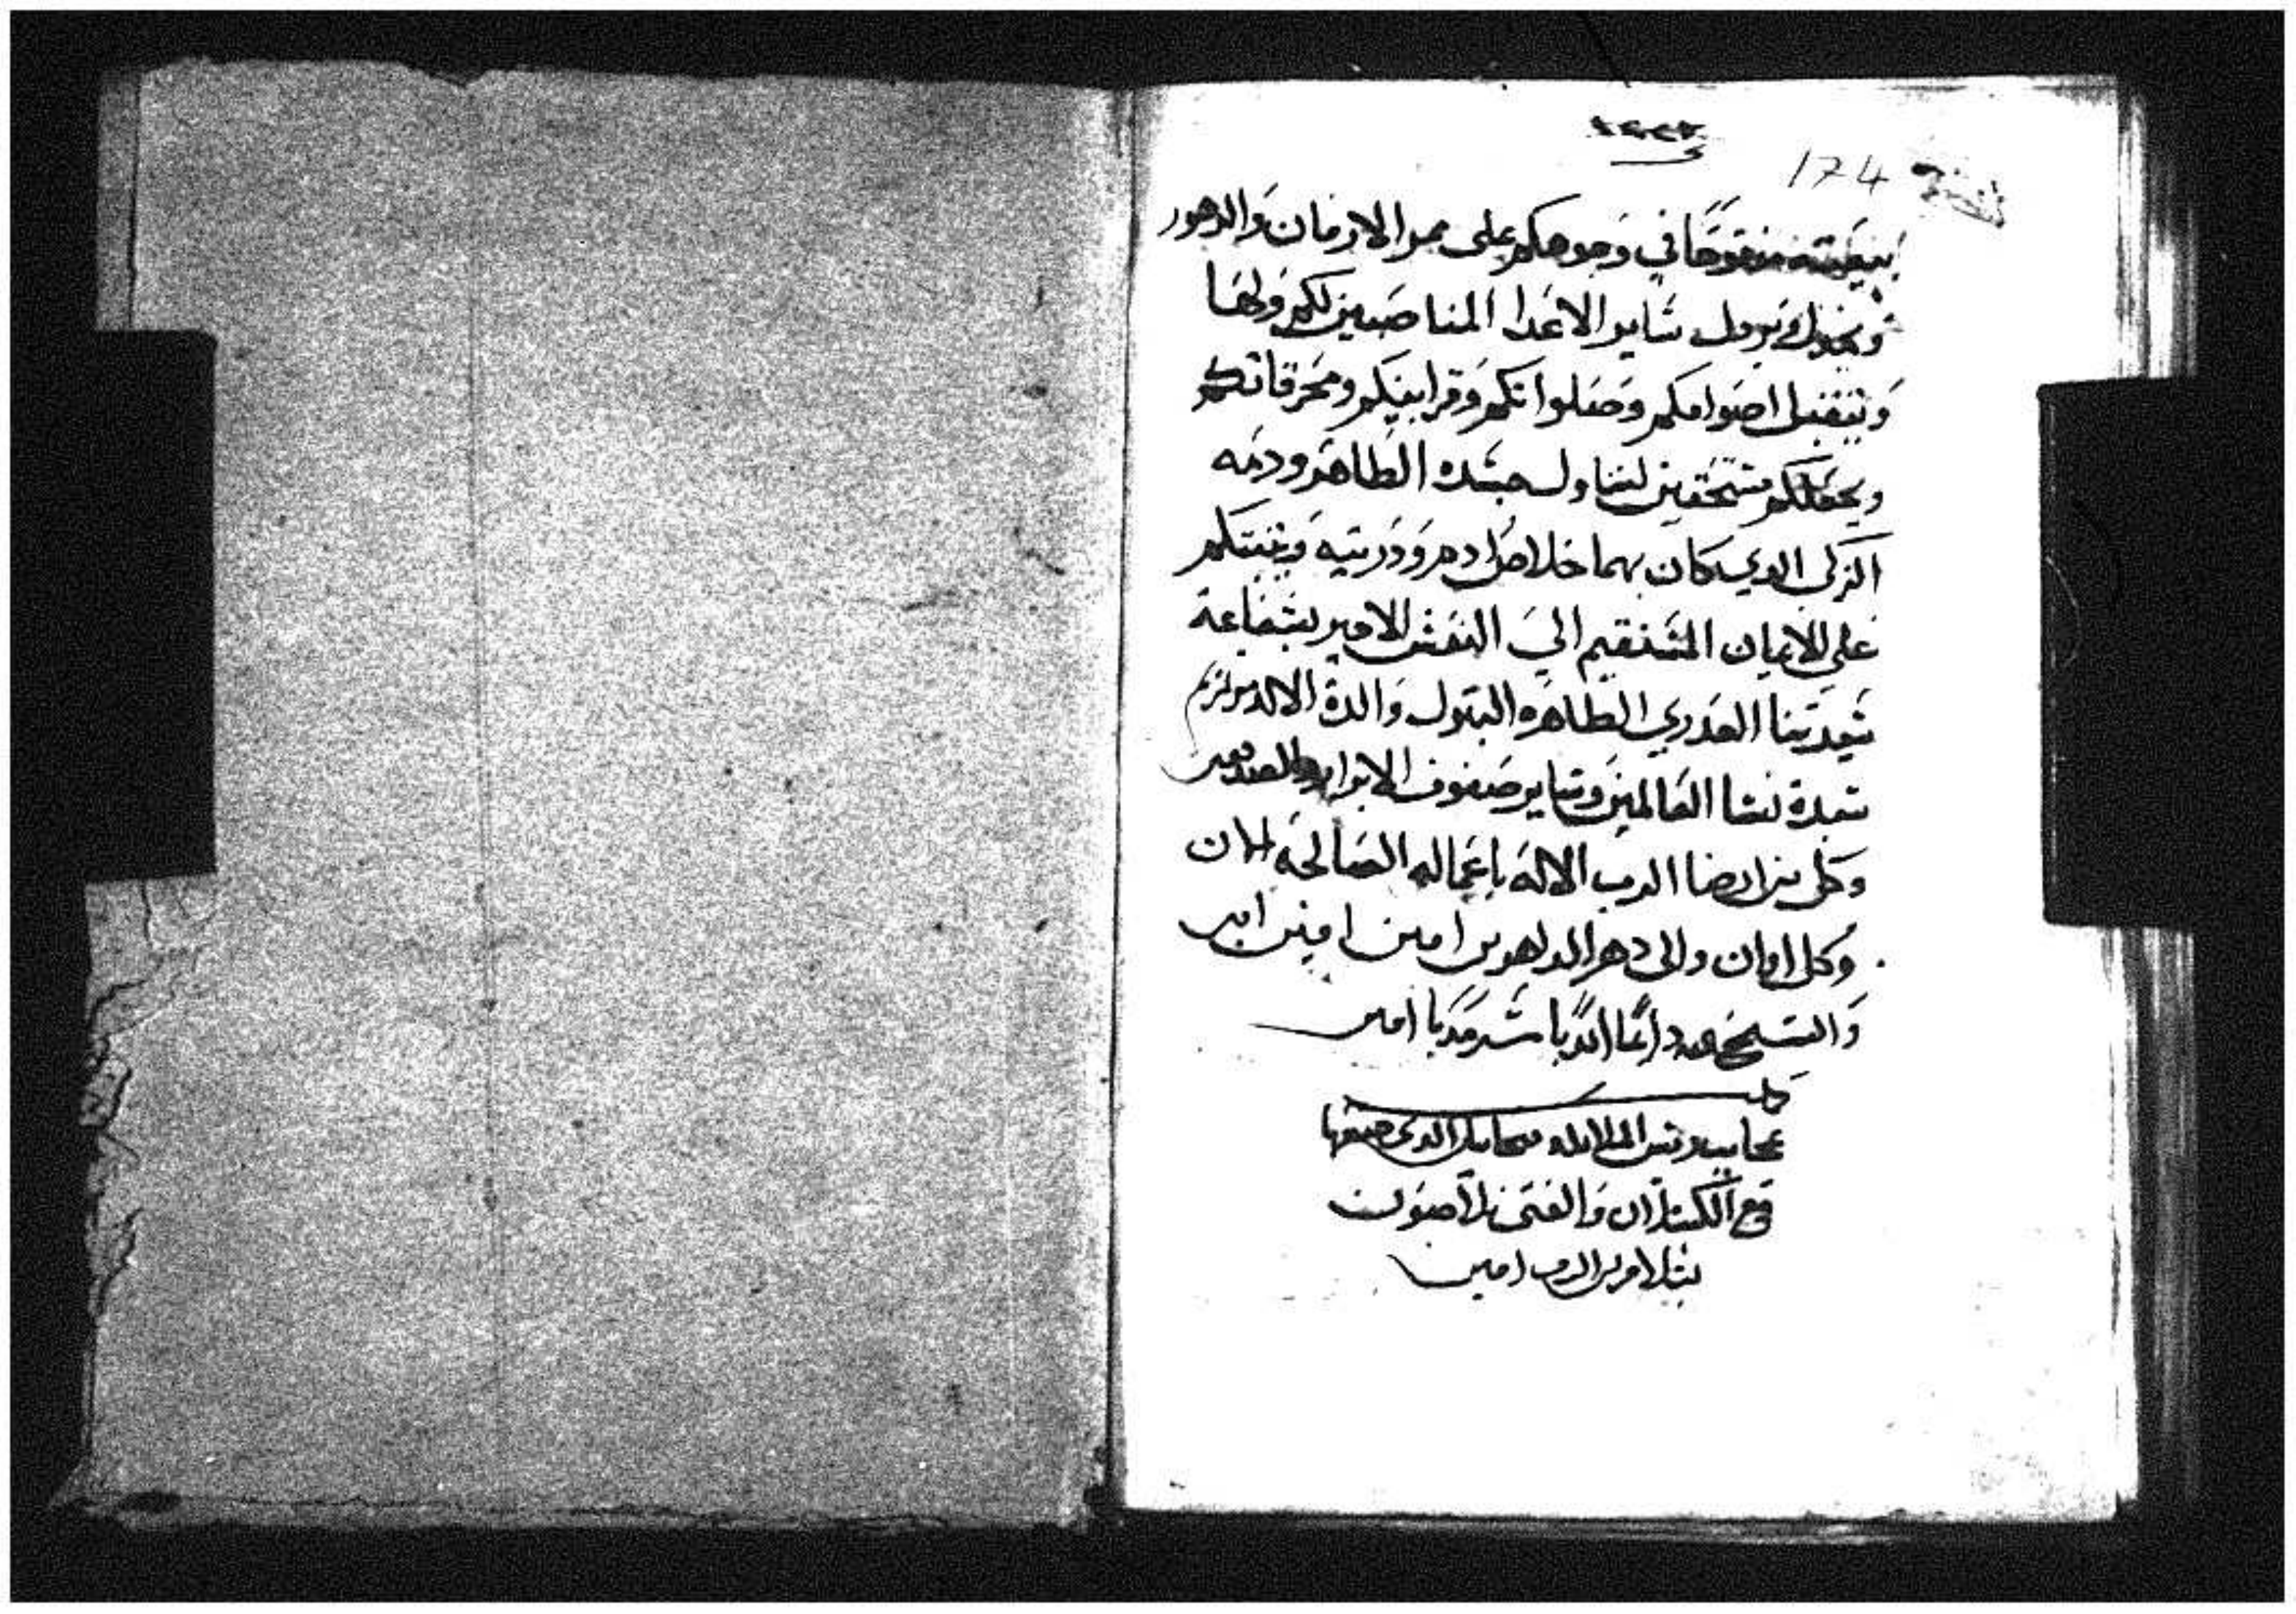 174
بنيعته مفتوحًا في وجوهكم على ممر الازمان والدهور
ساير الاعدا المناصبين لكم ولها
ويتقبل اصوامكم وصلواتكم وقرابينكم ومحرقاتكم
ويجعلكم مستحقين لتناول جسده الطاهر ودمه
الزكى الدي كان بهما خلاص ادم ودريته ويتبتكم
على الايمان المستقيم الي النفس الاخير بشفاعة
سيدتنا العدري الطاهره البتول والدة الاله مرتمريم
سيدة نسا العالمين وساير صفوف الابرار والصديقين
وكل من ارضا الرب الاله باعماله الصالحة الان
وكل اوان والى دهر الداهرين امين امين امين
والسبح لله دايمًا ابديا سرمديا امين
كملت
عجايب رييس الملايكه ميخاييل الدى صنعها
مع
بسلام من الرب امين